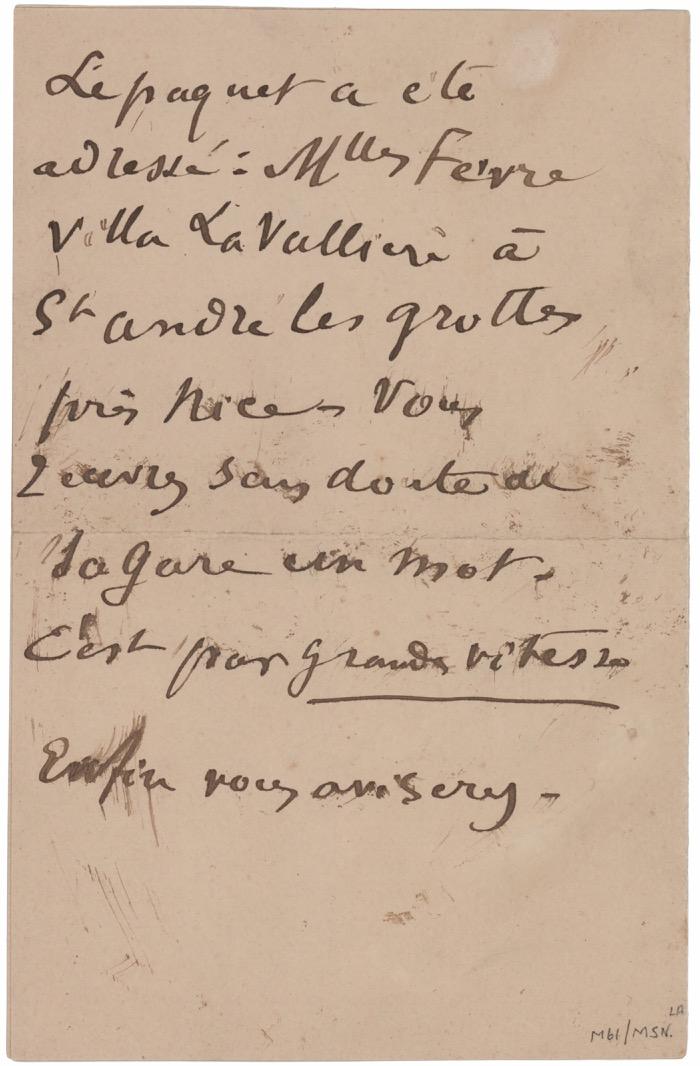 Le paquet a été
adressé : Mlles Fevre
Villa La Valliere à
St andré les grottes
près Nice - Vous
sans doute de
la gare un mot.
C'est par grande vitesse
Enfin vous aviserez -
M61/MSN.